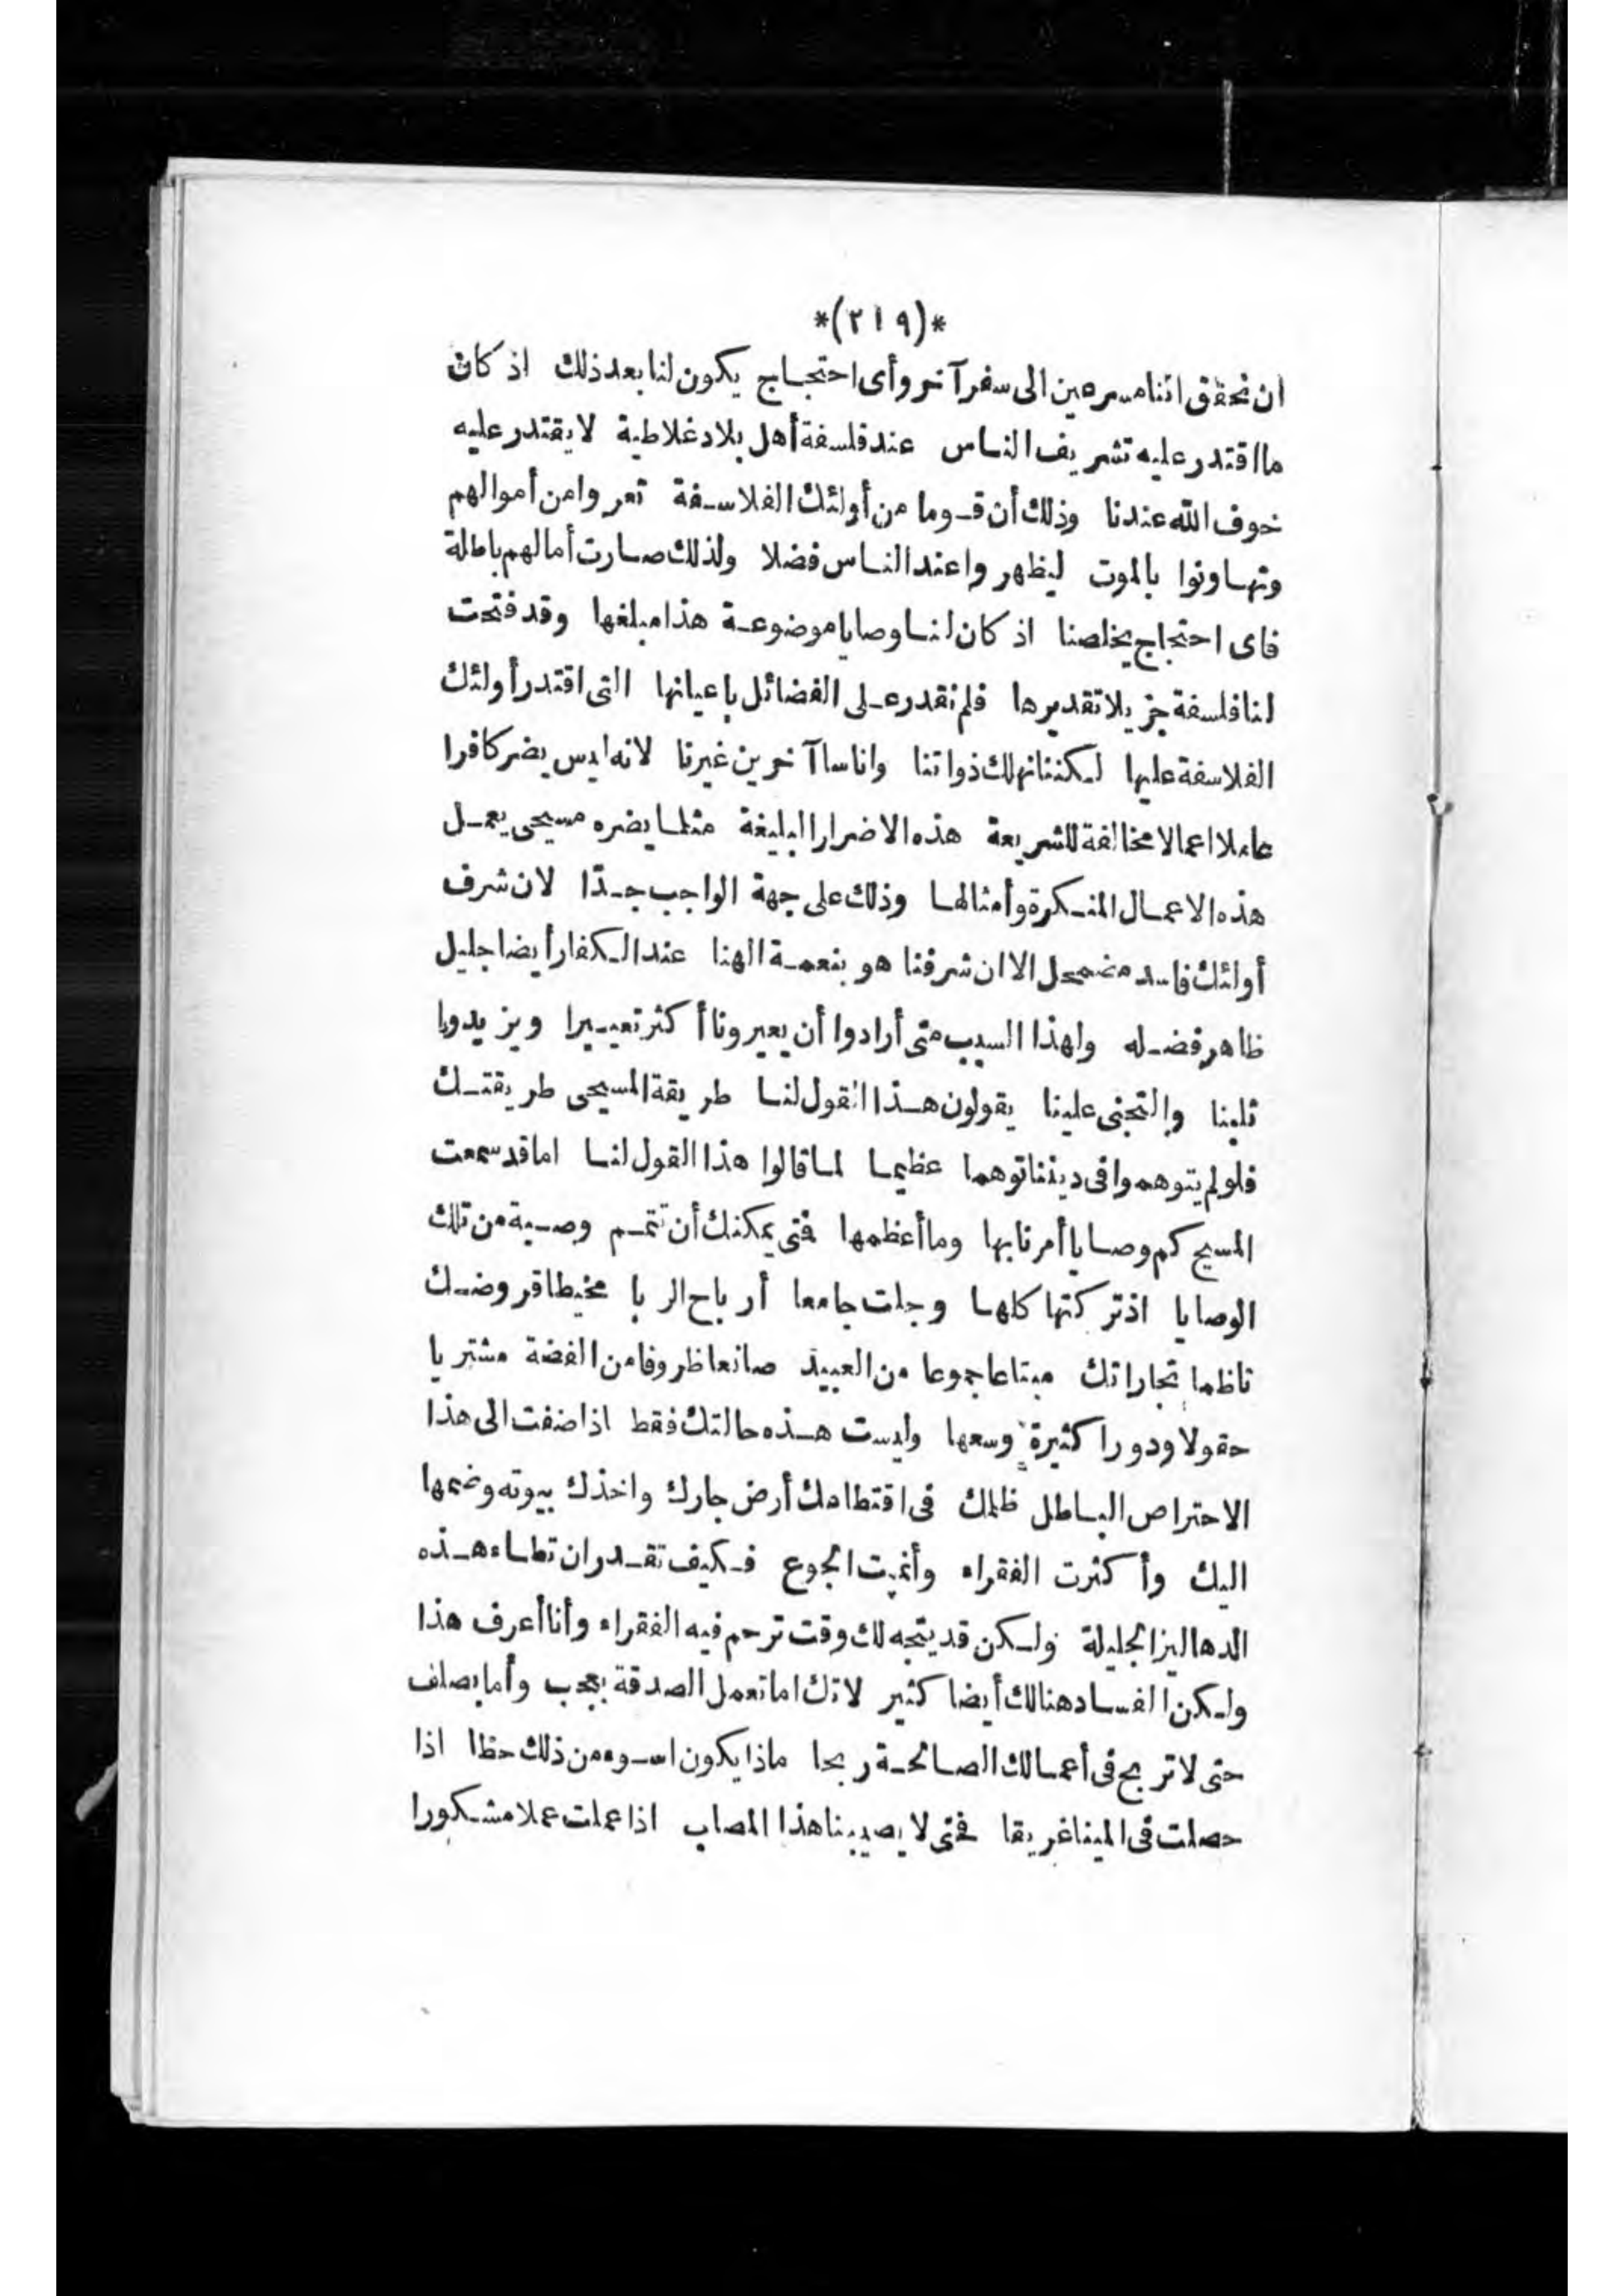 *(٢١٩)*
ان نحقق اننا مسرعين الى سفر آخر وأى احتجاج يكون لنا بعد ذلك اذ كان
ما اقتدر عليه تشريف الناس عند فلسفة أهل بلاد غلاطية لا يقتدر عليه
خوف الله عندنا وذلك أن قوما من أولئك الفلاسفة تعروا من أموالهم
وتهاونوا بالموت ليظهروا عند الناس فضلا ولذلك صارت أمالهم باطلة
فاى احتجاج يخلصنا اذ كان لنا وصايا موضوعة هذا مبلغها وقد فتحت
لنا فلسفة جزيلا تقديرها فلم نقدر على الفضائل باعيانها التى اقتدر أولئك
الفلاسفة عليها لكننا نهلك ذواتنا واناسا آخرين غيرنا لانه ليس يضر كافرا
عاملا اعمالا مخالفة للشريعة هذه الاضرار البليغة مثلما يضره مسيحى يعمل
هذه الاعمال المنكرة وأمثالها وذلك على جهة الواجب جدّا لان شرف
أولئك فاسد مضمحل الا ان شرفنا هو بنعمة الهنا عند الكفار أيضا جليل
ظاهر فضله ولهذا السبب متى أرادوا أن يعيرونا أكثر تعييرا ويزيدوا
ثلبنا والتجنى علينا يقولون هذا القول لنا طريقة المسيحى طريقتك
فلو لم يتوهموا فى ديننا توهما عظيما لما قالوا هذا القول لنا اما قد سمعت
المسيح كم وصايا أمرنا بها وما أعظمها فمتى يمكنك أن تتمم وصية من تلك
الوصايا اذ تركتها كلها وجلت جامعا أرباح الربا مخيطا قروضك
ناظما تجاراتك مبتاعا جموعا من العبيد صانعا ظروفا من الفضة مشتريا
حقولا ودورا كثيرة وسعها وليست هذه حالتك فقط اذا ضفت الى هذا
الاحتراص الباطل ظلمك فى اقتطاعك أرض جارك واخذك بيوته وضمها
اليك وأكثرت الفقراء وأنميت الجوع فكيف تقدر ان تطاء هذه
الدهاليز الجليلة ولكن قد يتجه لك وقت ترحم فيه الفقراء وأنا أعرف هذا
ولكن الفساد هنالك أيضا كثير لانك اما تعمل الصدقة بعجب وأما بصلف
حتى لا تربح فى أعمالك الصالحة ربحا ماذا يكون اسوء من ذلك حظا اذا
حصلت فى المينا غريقا فمتى لا يصيبنا هذا المصاب اذا عملت عملا مشكورا